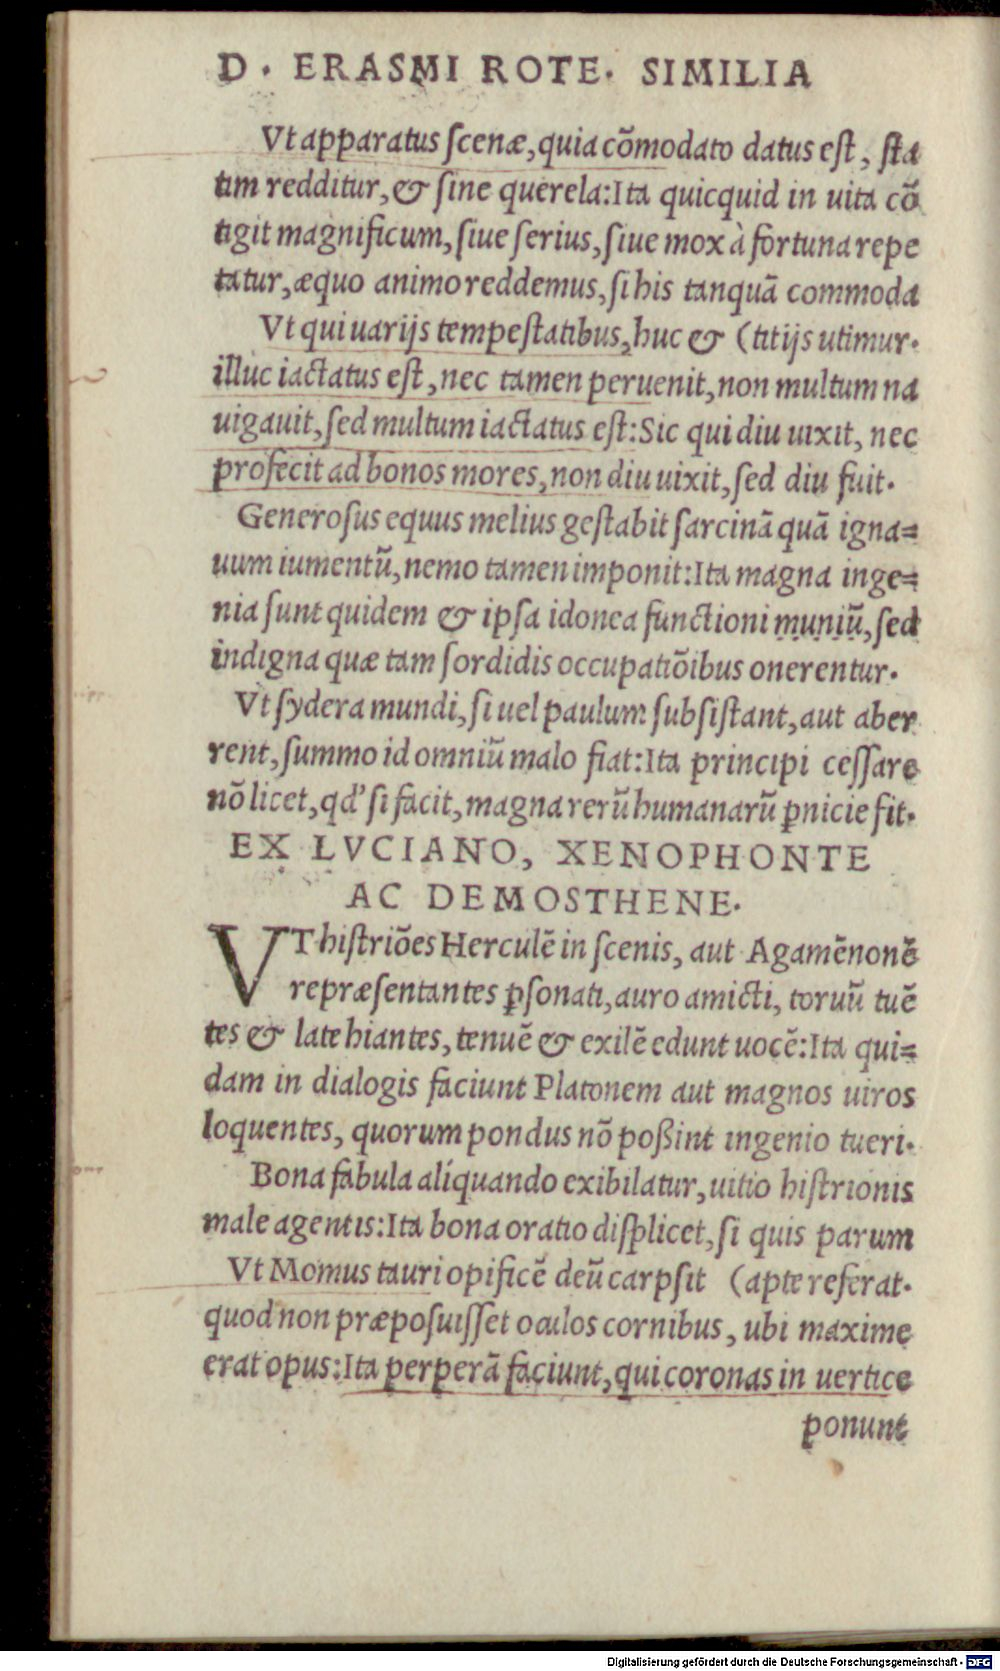 D. ERASMI ROTE. SIMILIA
Vt apparatus ſcenæ, quia cōmodato datus eſt, ſta
tim redditur, & ſine querela: Ita quicquid in uita cō
tigit magnificum, ſiue ſerius, ſiue mox à fortuna repe
tatur, æquo animo reddemus, ſi his tanquā commoda
Vt qui uarijs tempeſtatibus, huc & (titijs utimur.
illuc iactatus eſt, nec tamen peruenit, non multum na
uigauit, ſed multum iactatus eſt: Sic qui diu uixit, nec
profecit ad bonos mores, non diu uixit, ſed diu fuit.
Generoſus equus melius geſtabit ſarcinā quā igna=
uum iumentū, nemo tamen imponit: Ita magna inge=
nia ſunt quidem & ipſa idonea functioni muniū, ſed
indigna quæ tam ſordidis occupatiōibus onerentur.
Vt ſydera mundi, ſi uel paulum ſubſiſtant, aut aber
rent, ſummo id omniū malo fiat: Ita principi ceſſare
nō licet, qd' ſi facit, magna rerū humanarū ꝑnicie fit.
EX LVCIANO, XENOPHONTE
AC DEMOSTHENE.
VT hiſtriōes Herculē in ſcenis, aut Agamēnonē
repræſentantes ꝑſonati, auro amicti, toruū tuē
tes & late hiantes, tenuē & exilē edunt uocē: Ita qui=
dam in dialogis faciunt Platonem aut magnos uiros
loquentes, quorum pondus nō poßint ingenio tueri.
Bona fabula alíquando exibilatur, uitio hiſtrionis
male agentis: Ita bona oratio diſplicet, ſi quis parum
Vt Momus tauri opificē deū carpſit (apte referat.
quod non præpoſuiſſet oculos cornibus, ubi maxime
erat opus: Ita perperā faciunt, qui coronas in uertice
ponunt
Digitalisierung gefördert durch die Deutsche Forschungsgemeinschaft - DFG